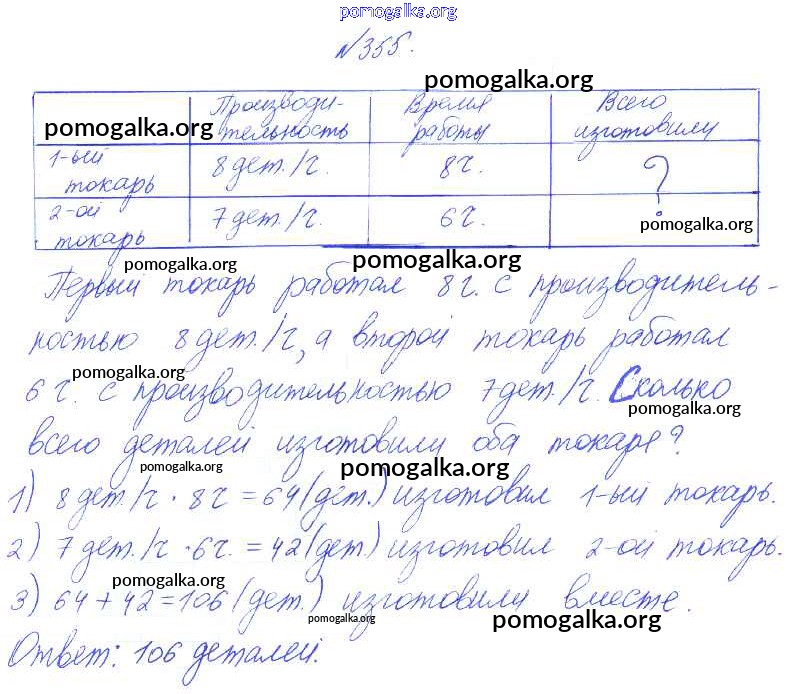 pomogalka.org
№355.
pomogalka.org
Производи- Время Всего
pomogalka.org
тельность работы изготовили
1-ый токарь 8 дет./ч. 8 ч. ?
2-ой токарь 7 дет./ч. 6 ч.
pomogalka.org
pomogalka.org pomogalka.org
Первый токарь работал 8 ч. с производитель-
ностью 8 дет./ч, а второй токарь работал
pomogalka.org
6 ч. с производительностью 7 дет./ч. Сколько
pomogalka.org
всего деталей изготовили оба токаря?
pomogalka.org pomogalka.org
1) 8 дет./ч · 8 ч = 64 (дет.) изготовил 1-ый токарь.
2) 7 дет./ч · 6 ч. = 42 (дет.) изготовил 2-ой токарь.
pomogalka.org
3) 64 + 42 = 106 (дет.) изготовили вместе.
pomogalka.org pomogalka.org
Ответ: 106 деталей.